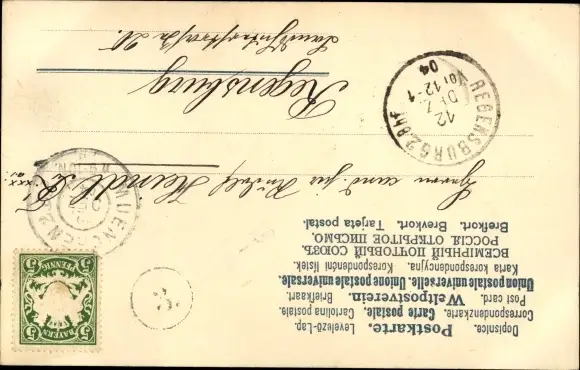 Dopisnice. Levelező-Lap.
Postkarte.
Correspondenzkarte. Carte postale. Cartolina postale.
Post card. Weltpostverein. Briefkaart.
Union postale universelle. Unione postale universale.
Karta korespondencyjna. Korespondenčni listek.
ВСЕМІРНЫЙ ПОЧТОВЫЙ СОЮЗЪ.
РОССІЯ. ОТКРЫТОЕ ПИСЬМО.
Brefkort. Brevkort. Tarjeta postal.
5 PFENNIG 5
5 BAYERN 5
MUENCHEN
Herrn cand. jur.
Regensburg
REGENSBURG 2 BHF
12
DEZ
Vor 12-1
04